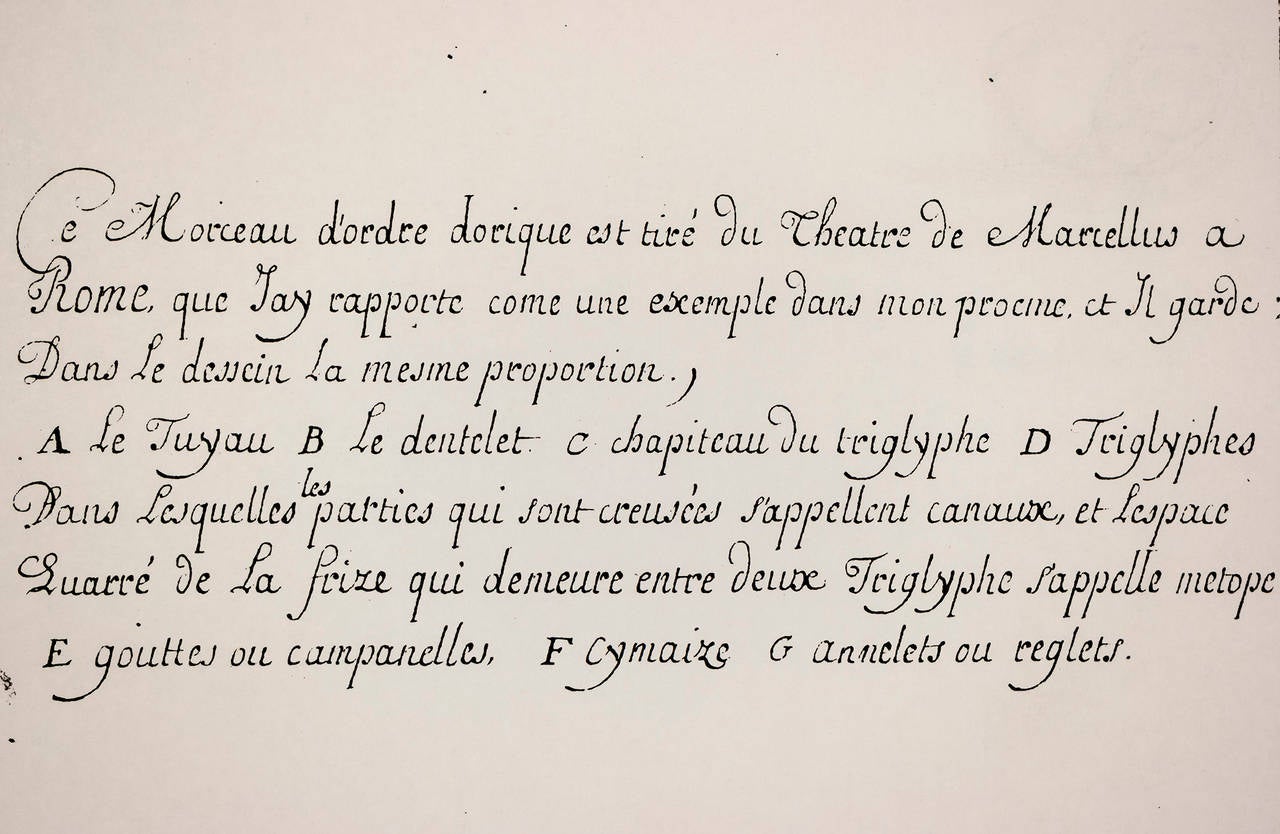 Ce Morceau d'ordre dorique est tiré du Theatre de Marcellus a
Rome, que Jay rapporte come une exemple dans mon proeme, et Il garde
Dans Le dessein La mesme proportion.
A Le Tuyau B Le dentelet C chapiteau du triglyphe D Triglyphes
Dans Lesquelles les parties qui sont creusées s'appellent canaux, et Lespace
Quarré de La frize qui demeure entre deux Triglyphe s'appelle metope
E gouttes ou campanelles, F Cymaize G annelets ou reglets.